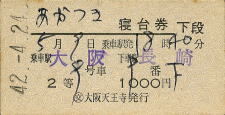 あかつき
寝台券 下段
5月9日 乗車駅発 18時40分
乗車駅 大阪 長崎
2等 9号車 番下
1000円
大阪天王寺発行
42.-4.24